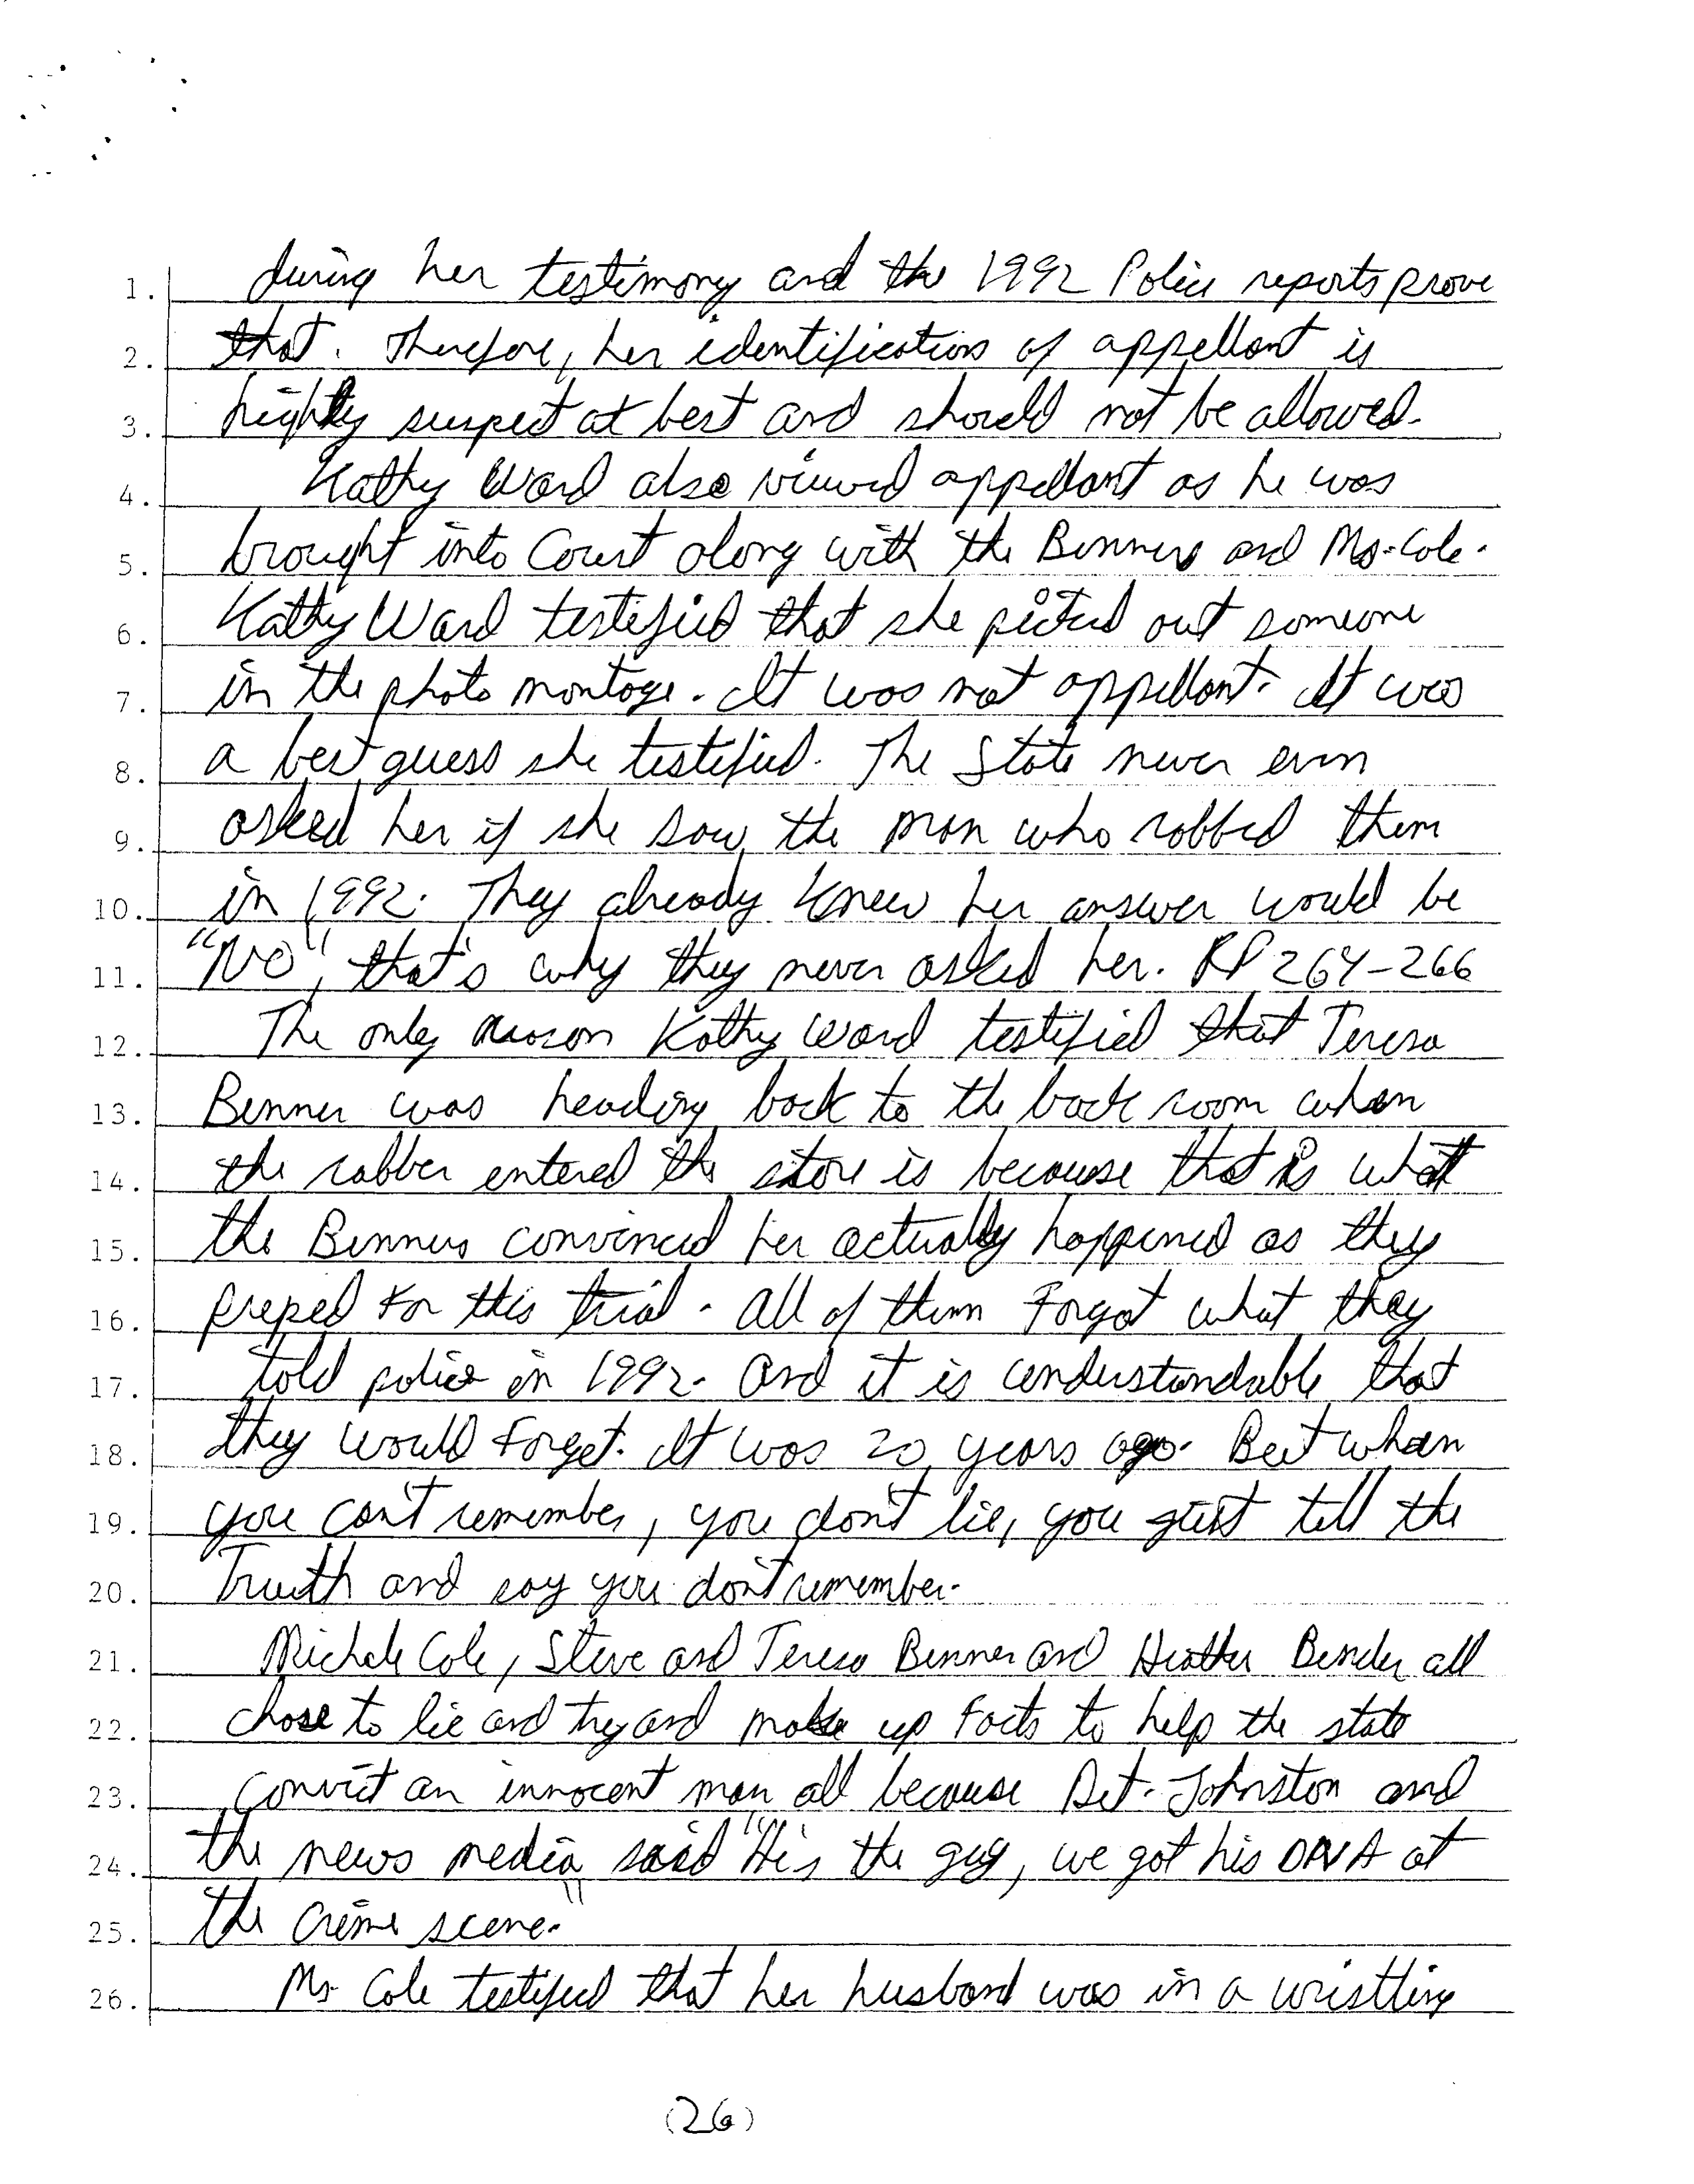 1. during her testimony and the 1992 Police reports prove
2. that. Therefore, her identification of appellant is
3. highly suspect at best and should not be allowed.
4. Kathy Ward also viewed appellant as he was
5. brought into Court along with the Benners and Ms. Cole.
6. Kathy Ward testified that she picked out someone
7. in the photo montage. It was not appellant. It was
8. a best guess she testified. The State never even
9. asked her if she saw the man who robbed them
10. in 1992. They already knew her answer would be
11. "NO", that's why they never asked her. RP 264-266
12. The only reason Kathy Ward testified that Teresa
13. Benner was heading back to the back room when
14. the robber entered the store is because that is what
15. the Benners convinced her actually happened as they
16. preped for this trial. All of them Forgot what they
17. told police in 1992. And it is understandable that
18. they would Forget. It was 20 years ago. But when
19. you can't remember, you don't lie, you just tell the
20. Truth and say you don't remember.
21. Michele Cole, Steve and Teresa Benner and Heather Bender all
22. chose to lie and try and make up Facts to help the state
23. convict an innocent man all because Det. Johnston and
24. the news media said "He's the guy, we got his DNA at
25. the crime scene."
26. Ms. Cole testified that her husband was in a wristling
(26)